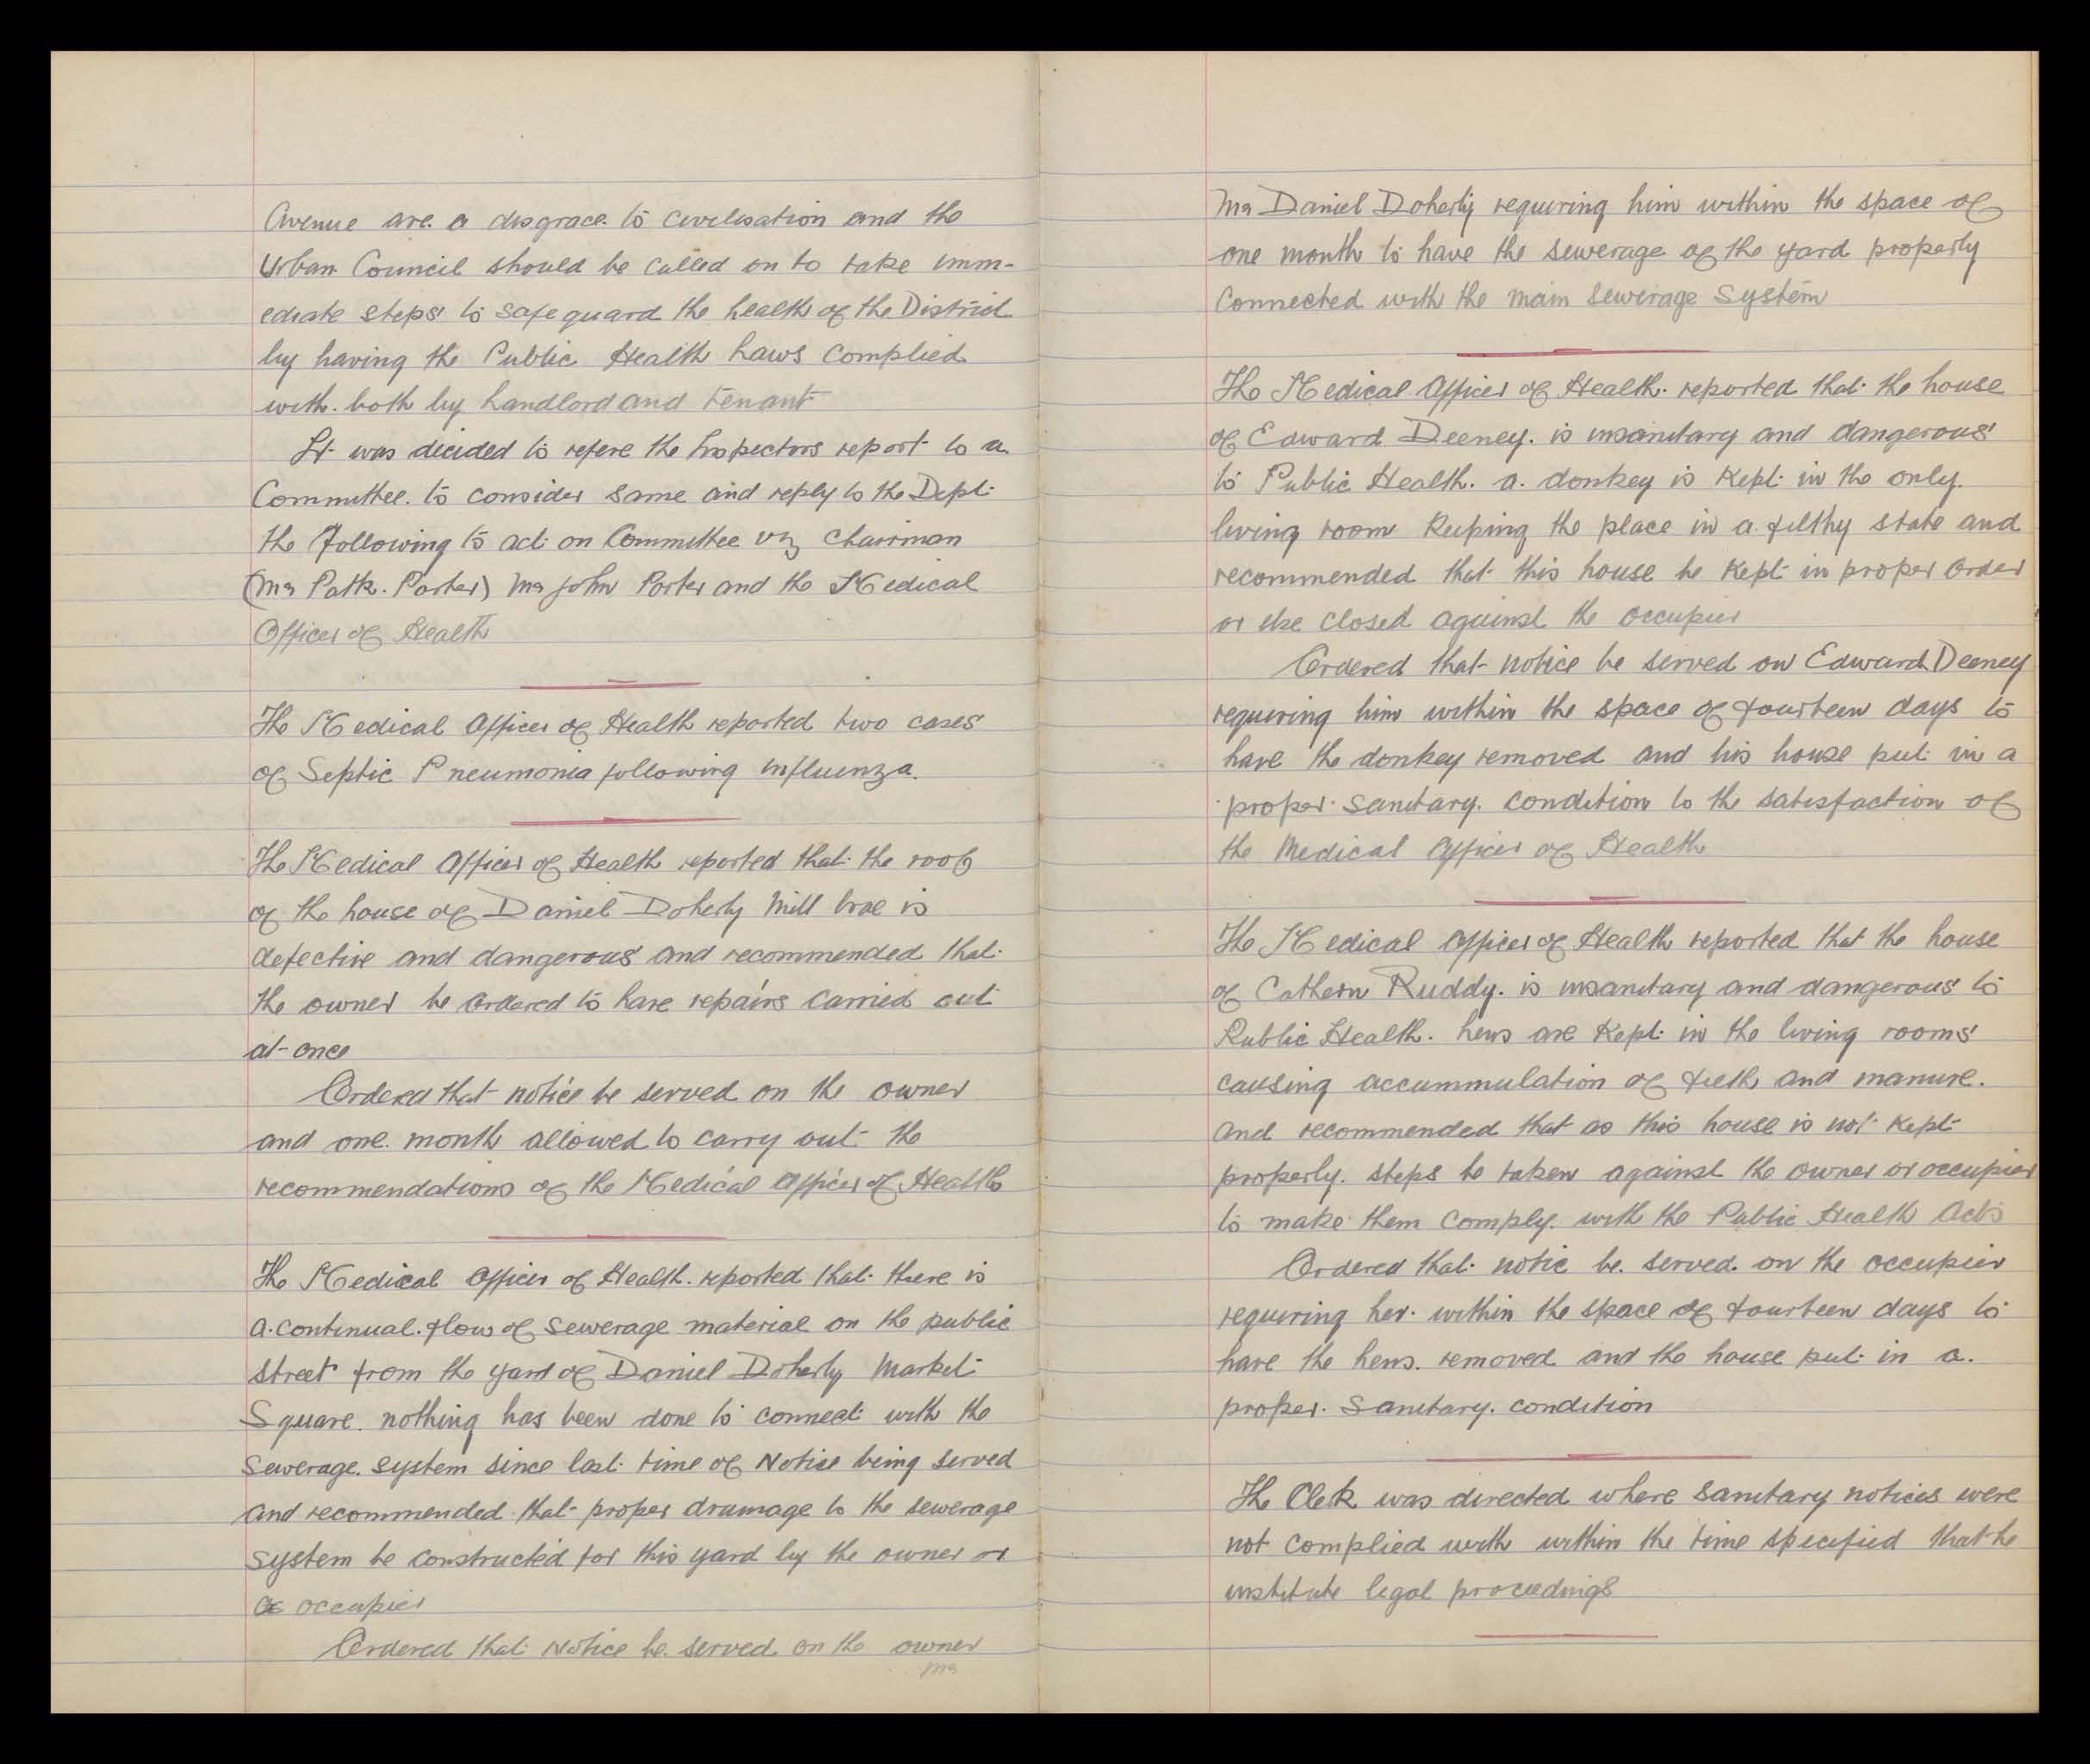 Avenue are a disgrace to civilisation and the
Urban Council should be called on to take imm-
ediate steps to safe guard the health of the District
by having the Public Health Laws complied
with both by Landlord and Tenant
It was decided to refere the Inspectors report to a
Committee. to consider same and reply to the Dept.
the following to act on Committee viz Chairman
(Mr Patk. Porter) Mr John Porter and the Medical
Officer of Health
The Medical Officer of Health reported two cases
of Septic Pneumonia following influenza.
The Medical Officer of Health reported that the roof
of the house of Daniel Doherty Mill brae is
defective and dangerous and recommended that
the owner be ordered to have repairs carried out
at once
Ordered that notice be served on the owner
and one month allowed to carry out the
recommendations of the Medical Officer of Health
The Medical Officer of Health reported that there is
a continual flow of sewerage material on the public
street from the yard of Daniel Doherty Market
Square. nothing has been done to connect with the
sewerage system since last time of Notise being served
and recommended that proper drainage to the sewerage
system be constructed for this yard by the owner or
occupier
Ordered that Notice be served on the owner
Mr
Mr Daniel Doherty requiring him within the space of
one month to have the sewerage of the yard properly
connected with the main sewerage system
The Medical Officer of Health reported that the house
of Edward Deeney. is insanitary and dangerous
to Public Health. a. donkey is kept in the only
living room keeping the place in a filthy state and
recommended that this house be kept in proper order
or else closed against the occupier
Ordered that notice be served on Edward Deeney
requiring him within the space of fourteen days to
have the donkey removed and his house put in a
proper sanitary. condition to the satisfaction of
the Medical Officer of Health
The Medical Officer of Health reported that the house
of Cathern Ruddy. is insanitary and dangerous to
Public Health. hens are kept in the living rooms
causing accummulation of fielth and manure.
and recommended that as this house is not kept
properly. steps be taken against the owner or occupier
to make them comply. with the Public Health Acts
Ordered that notic be served on the occupier
requiring her within the space of fourteen days to
have the hens. removed and the house put in a.
proper. sanitary. condition
The Clerk was directed where sanitary notices were
not complied with within the time specified that he
institute legal proceedings